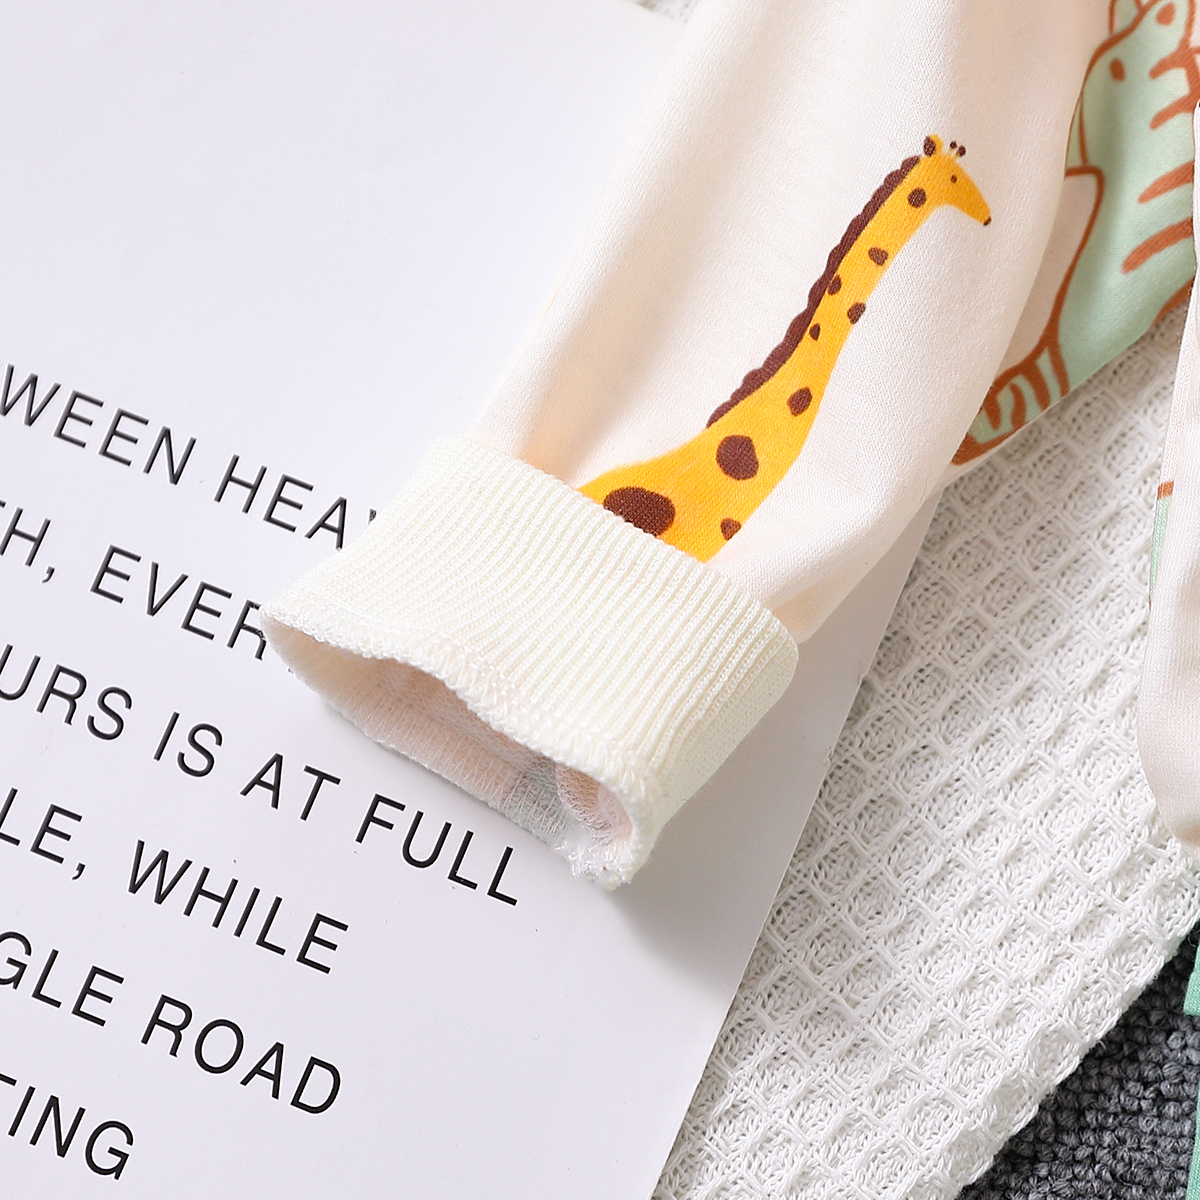 WEEN HEA
TH, EVER
URS IS AT FULL
LE, WHILE
GLE ROAD
TING